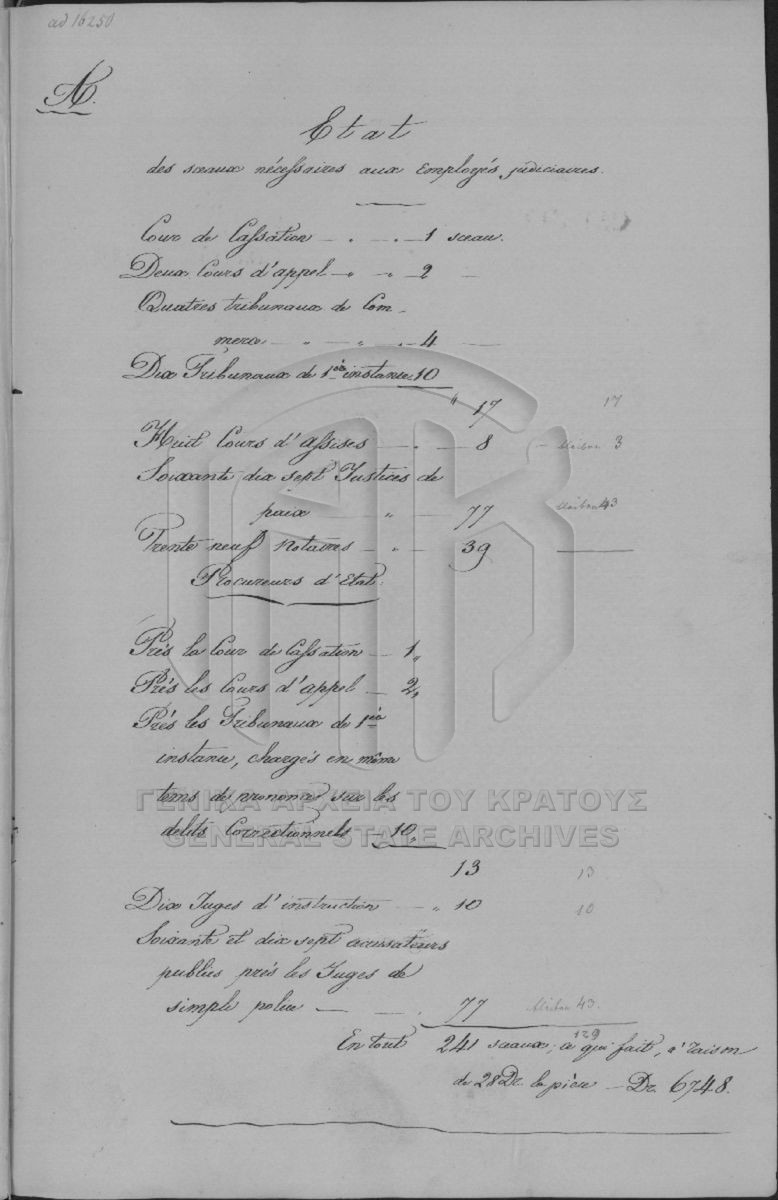 ad 16250
A.
Etat
des sceaux nécessaires aux Employés judiciaires.
Cour de Cassation — „ — 1 sceau.
Deux Cours d'appel — „ — „ 2 —
Quatres tribunaux de Com-
merce — „ — „ — 4 —
Dix Tribunaux de 1ère instance 10
„ 17 17
Huit Cours d'assises — „ — 8 — 3
Soixante dix sept Justices de
paix — „ — 77 43
Trente neuf Notaires — „ — 39
Procureurs d'Etat:
Près la Cour de Cassation — 1„
Près les Cours d'appel — 2„
Près les Tribunaux de 1ère
instance, chargés en même
tems de prononcer sur les
délits Correctionnels — 10„
13 13
Dix Juges d'instruction — „ 10 10
Soixante et dix sept accusateurs
publics près les Juges de
simple police — — . 77 43.
129
En tout 241 sceaux, ce qui fait, à raison
de 28 Dr. la pièce — Dr. 6748.
ΓΕΝΙΚΑ ΑΡΧΕΙΑ ΤΟΥ ΚΡΑΤΟΥΣ
GENERAL STATE ARCHIVES